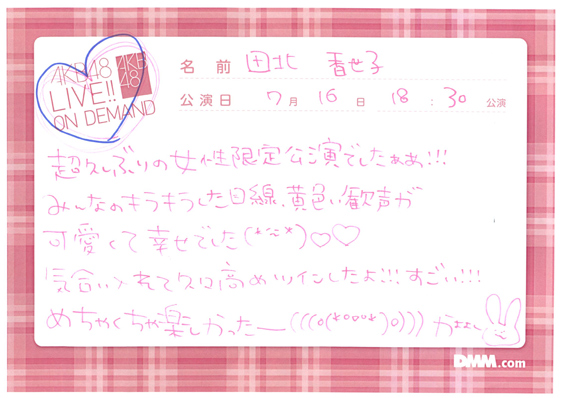 AKB48
LIVE!!
ON DEMAND
AKB
48
名前 田北 香世子
公演日 7月16日 18:30公演
超久しぶりの女性限定公演でしたぁぁ!!!
みんなのキラキラした目線、黄色い歓声が
可愛くて幸せでした(*´~`*)♡♡
気合い入れて久々高めツインしたよ!!!すごい!!!
めちゃくちゃ楽しかったー(((o(*°▽°*)o)))かよよん
DMM.com